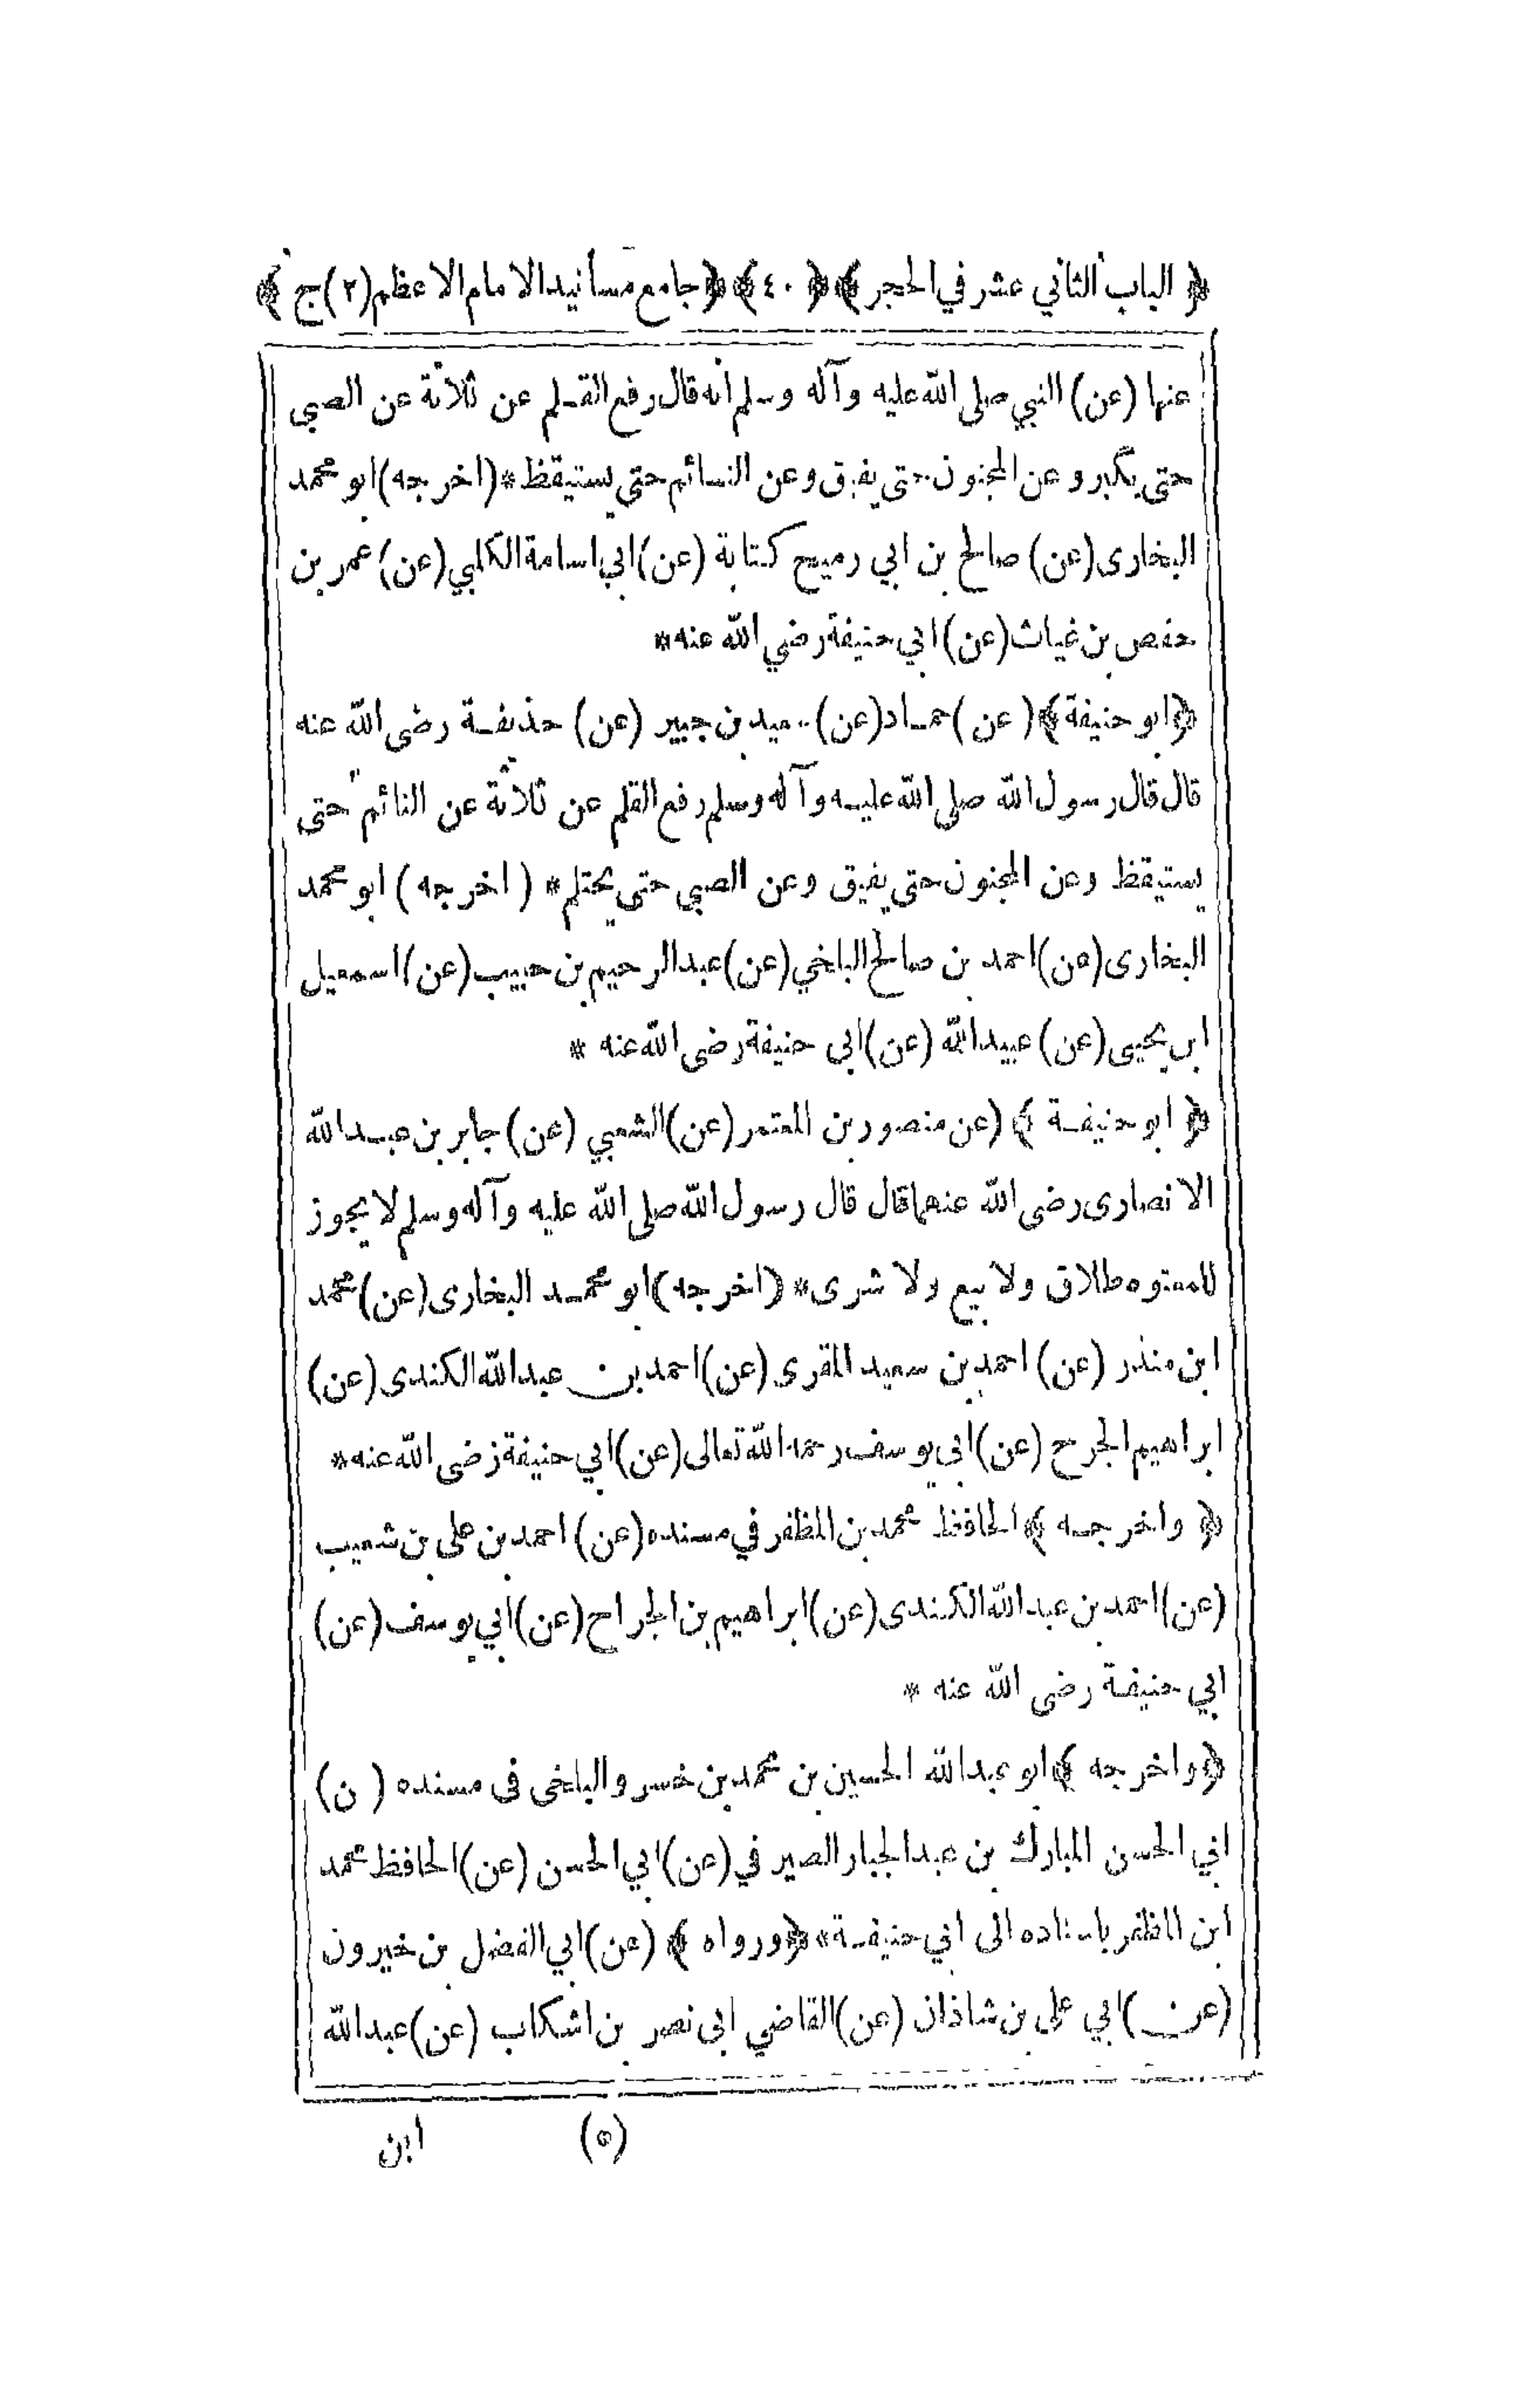 ﴿ الباب الثاني عشر في الحجر ﴾ ﴿ ٤٠ ﴾ ﴿ جامع مسانيد الامام الاعظم (٢) ج ﴾
عنها (عن) النبي صلى الله عليه وآله وسلم انه قال رفع القلم عن ثلاثة عن الصبي
حتى يكبر وعن المجنون حتى يفيق وعن النائم حتى يستيقظ * (اخرجه) ابو محمد
البخارى (عن) صالح بن ابي رميح كتابة (عن) ابي اسامة الكلبي (عن) عمر بن
حفص بن غياث (عن) ابي حنيفة رضي الله عنه *
﴿ ابو حنيفة ﴾ (عن) حماد (عن) سعيد بن جبير (عن) حذيفة رضى الله عنه
قال قال رسول الله صلى الله عليه وآله وسلم رفع القلم عن ثلاثة عن النائم حتى
يستيقظ وعن المجنون حتى يفيق وعن الصبي حتى يحتلم * (اخرجه) ابو محمد
البخارى (عن) احمد بن صالح البلخي (عن) عبد الرحيم بن حبيب (عن) اسمعيل
ابن يحيى (عن) عبيد الله (عن) ابى حنيفة رضى الله عنه *
﴿ ابو حنيفة ﴾ (عن منصور بن المعتمر (عن) الشعبي (عن) جابر بن عبد الله
الانصارى رضى الله عنهما قال قال رسول الله صلى الله عليه وآله وسلم لا يجوز
للمعتوه طلاق ولا بيع ولا شرى * (اخرجه) ابو محمد البخارى (عن) محمد
ابن منذر (عن) احمد بن سعيد المقرى (عن) احمد بن عبد الله الكندى (عن)
ابراهيم الجرح (عن) ابى يوسف رحمه الله تعالى (عن) ابي حنيفة رضى الله عنه *
﴿ واخرجه ﴾ الحافظ محمد بن المظفر في مسنده (عن) احمد بن على بن شعيب
(عن) احمد بن عبد الله الكندى (عن) ابراهيم بن الجراح (عن) ابي يوسف (عن)
ابي حنيفة رضى الله عنه *
﴿ واخرجه ﴾ ابو عبد الله الحسين بن محمد بن خسرو البلخى فى مسنده ( ن)
ابي الحسن المبارك بن عبد الجبار الصيرفي (عن) ابي الحسن (عن) الحافظ محمد
ابن المظفر باسناده الى ابي حنيفة * ﴿ ورواه ﴾ (عن) ابي الفضل بن خيرون
(عن) ابي على بن شاذان (عن) القاضي ابى نصر بن اشكاب (عن) عبد الله
(٥) ابن